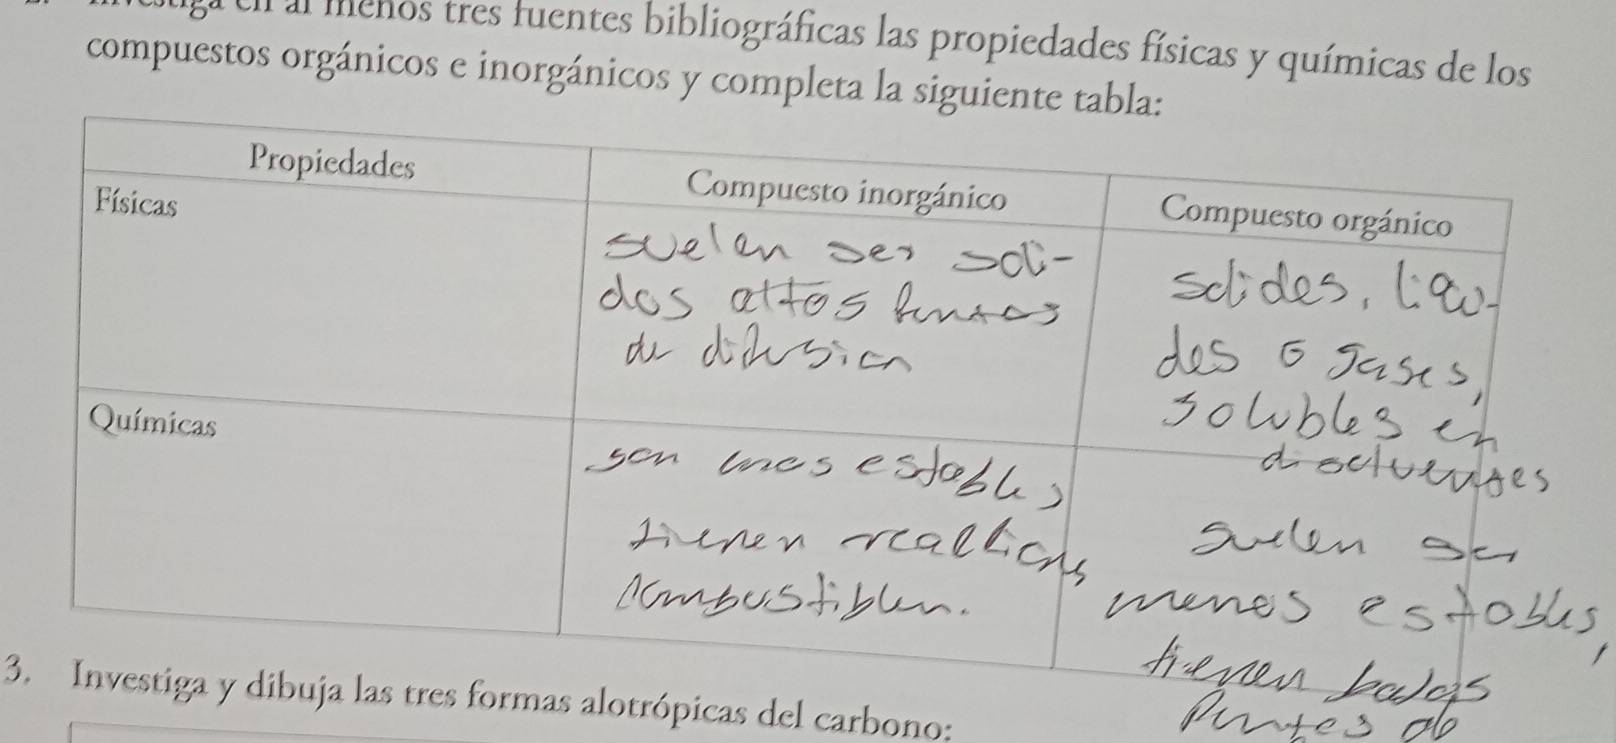 en al menos tres fuentes bibliográficas las propiedades físicas y químicas de los
compuestos orgánicos e inorgánicos y completa la siguiente tabla:
Propiedades
Compuesto inorgánico
Compuesto orgánico
Físicas
suelen ser soli-
dos altos
de
solides, liqu-
des o gases,
solubles en
Químicas
son mas estables
tienen
suelen ser
menos estables,
tienen bajos
puntes de
3. Investiga y dibuja las tres formas alotrópicas del carbono: